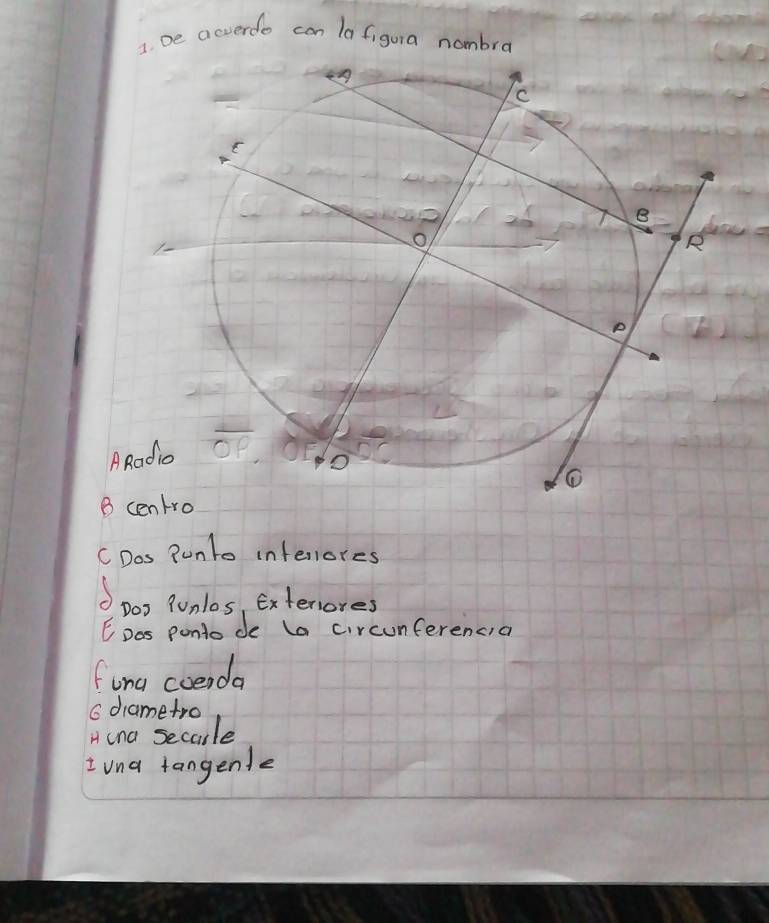 1. De acuerdo con la figura nombra
A
C
E
B
R
O
P
D
Q
A Radio OP, OE
B centro
C Dos Punto interiores
d Dos Puntos Exteriores
E Dos punto de la circunferencia
f una cuerda
G diametro
H una secante
I una tangente